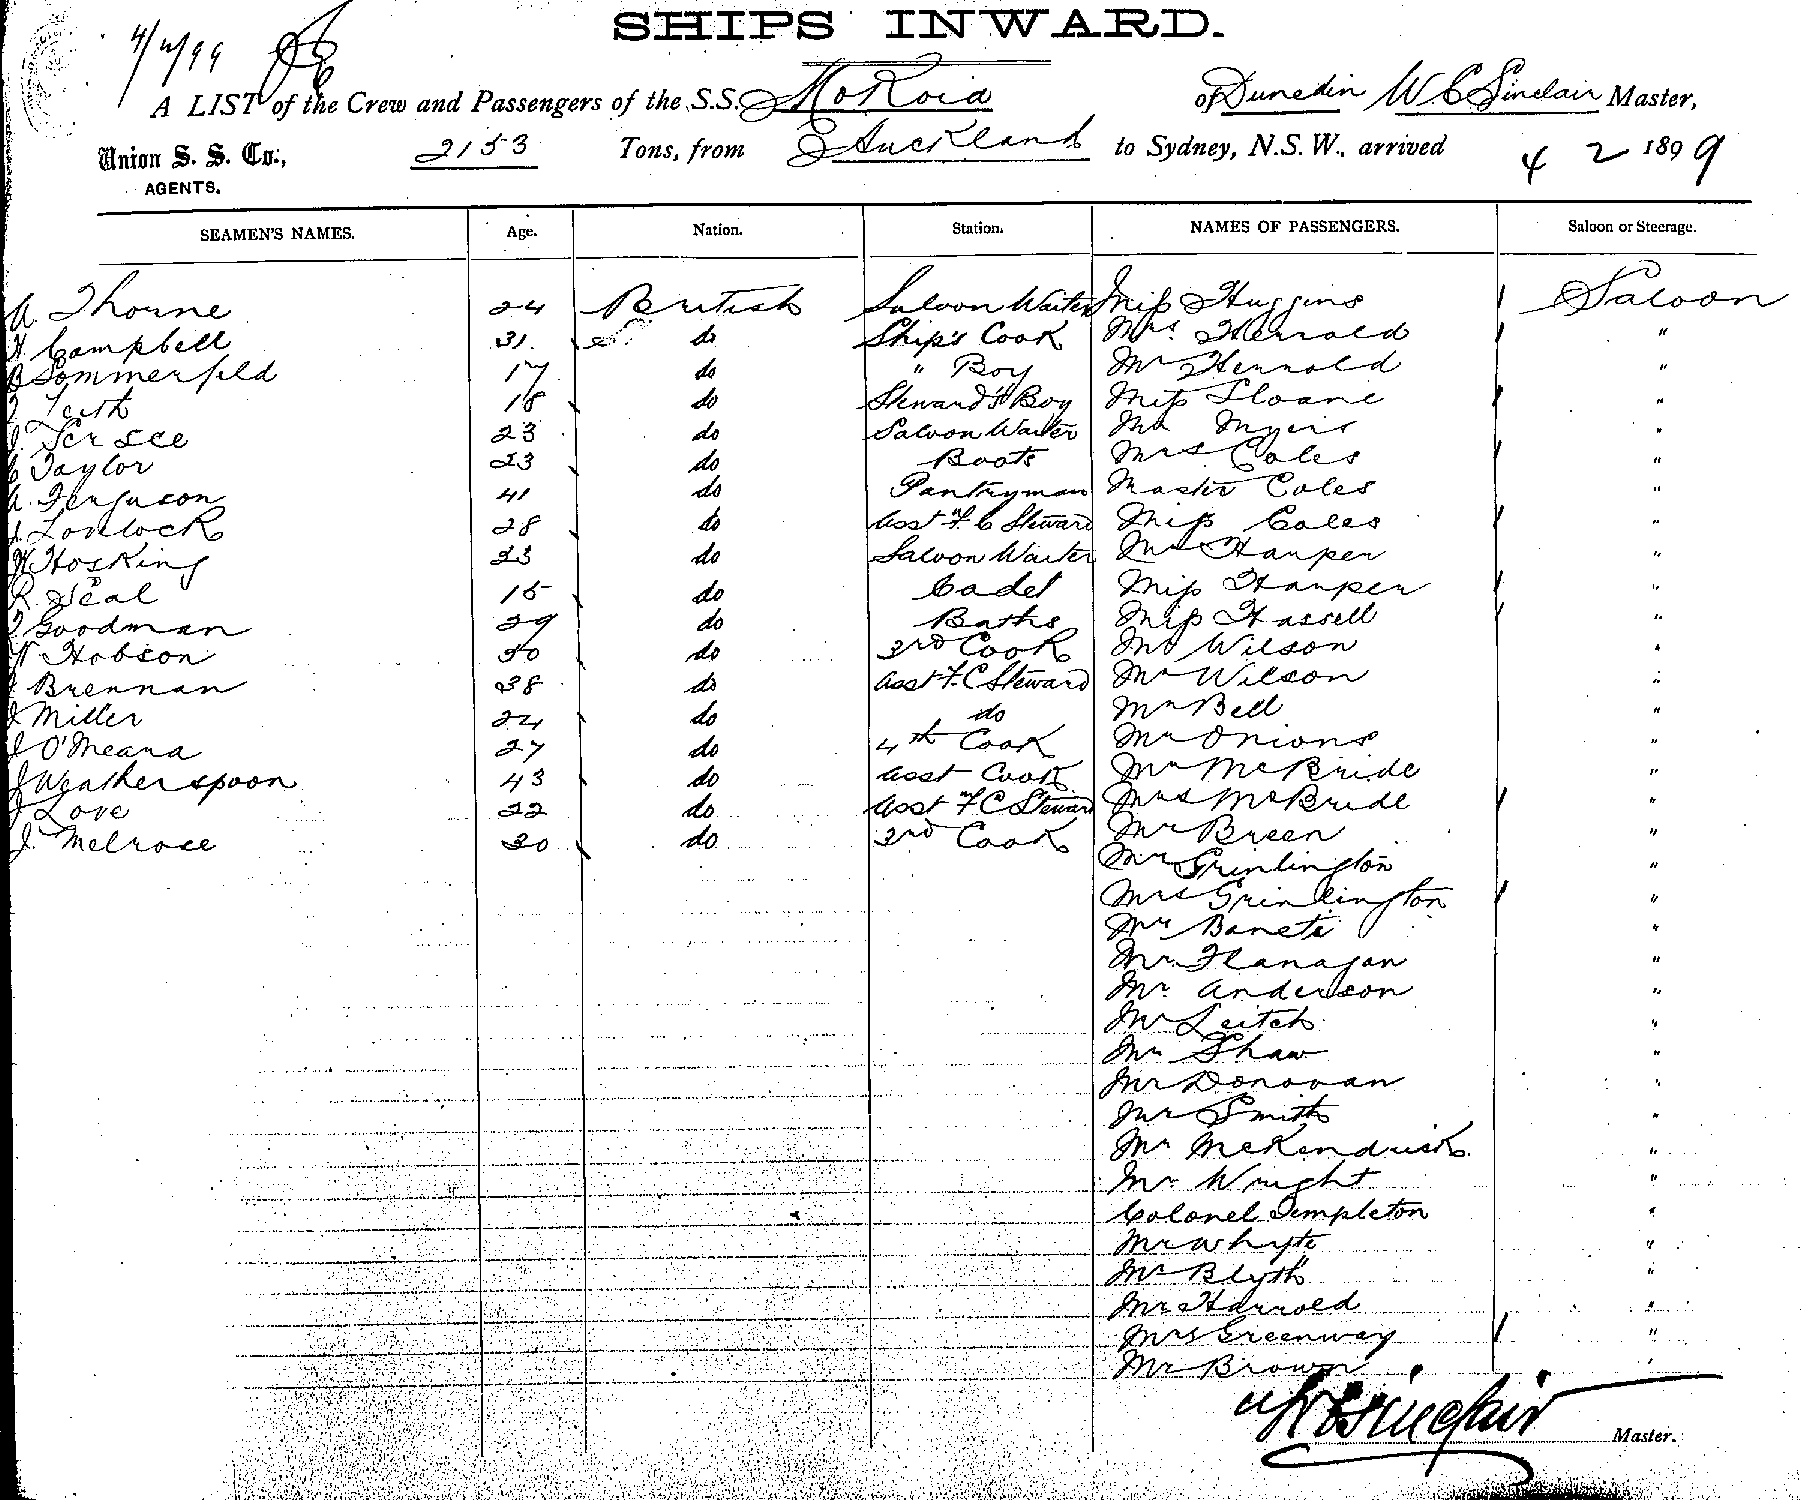 SHIPS INWARD.
4/2/99
A LIST of the Crew and Passengers of the S.S. Mokoia of Dunedin W C Sinclair Master,
Union S. S. Co., 2153 Tons, from Auckland to Sydney, N.S.W., arrived 4 2 1899
AGENTS.
SEAMEN'S NAMES. Age. Nation. Station. NAMES OF PASSENGERS. Saloon or Steerage.
A. Thorne 24 British Saloon Waiter Miss Huggins Saloon
H Campbell 31 do Ship's Cook Mrs. Herrold "
B Sommerfeld 17 do " Boy Mr Herrold "
Teith 18 do Steward's Boy Miss Sloane "
J. Tersee 23 do Saloon Waiter Mr Myers "
C Taylor 23 do Boots Mrs Coles "
A. Ferguson 41 do Pantryman Master Coles "
J. Lovelock 28 do Asst F. C Steward Miss Coles "
H Hosking 23 do Saloon Waiter Mr Harper "
R. Seal 15 do Cadet Miss Harper "
Goodman 29 do Baths Miss Hassell "
Hobson 30 do 3rd Cook Mr Wilson "
Brennan 38 do Asst F. C Steward Mr Wilson "
J Miller 24 do do Mr Bell "
J O'Meara 27 do 4th Cook Mr Onions "
J Weatherspoon 43 do Asst Cook Mr McBride "
J Love 22 do Asst F C Steward Mrs McBride "
J. Melrose 30 do 3rd Cook Mr Breen "
Mr Grinlington "
Mrs Grinlington "
Mr "
Mr. Flanagan "
Mr. Anderson "
Mr Leitch "
Mr Shaw "
Mr Donovan "
Mr Smith "
Mr McKendrick "
Mr Wright "
Colonel Templeton "
Mr Whyte "
Mr Blyth "
Mr Harrold "
Mrs Greenway "
Mr Brown "
W C Sinclair Master.